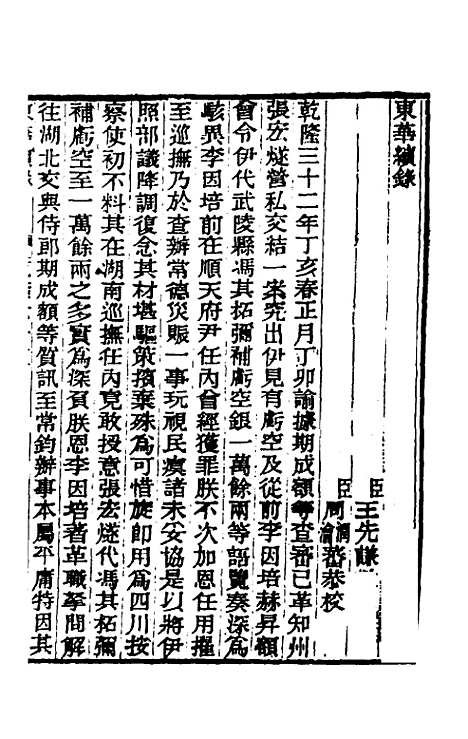 東華續錄
臣王先謙
臣周潤蕃周瀹蕃恭校
乾隆三十二年丁亥春正月丁卯諭據期成額等查審已革知州
張宏燧營私交結一案究出伊見有虧空及從前李因培赫昇額
曾令伊代武陵縣馮其柘彌補虧空銀一萬餘兩等語覽奏深爲
駭異李因培前在順天府尹任內曾經獲罪朕不次加恩任用擢
至巡撫乃於查辦常德災賑一事玩視民瘼諸未妥協是以將伊
照部議降調復念其材堪驅策擯棄殊爲可惜旋即用爲四川按
察使初不料其在湖南巡撫任內竟敢授意張宏燧代馮其柘彌
補虧空至一萬餘兩之多實爲深負朕恩李因培著革職拏問解
往湖北交與侍郎期成額等質訊至常鈞辦事本屬平庸特因其